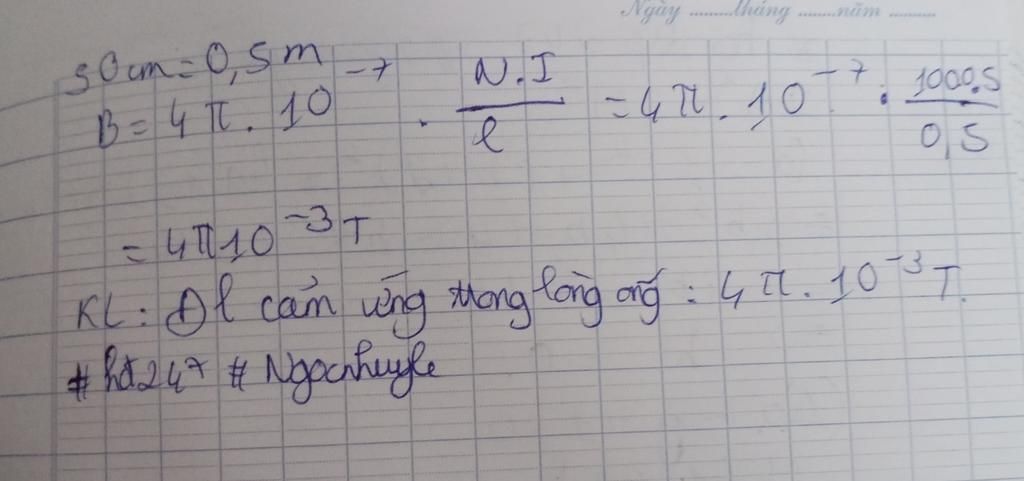 Ngày ........tháng ......năm .........
50cm = 0,5m
B = 4π . 10⁻⁷ . N.I/l = 4π . 10⁻⁷ . 1000.5/0,5
= 4π10⁻³ T
KL: Đl cảm ứng trong lòng ống : 4π . 10⁻³ T.
#hđ247 # Ngochuyle